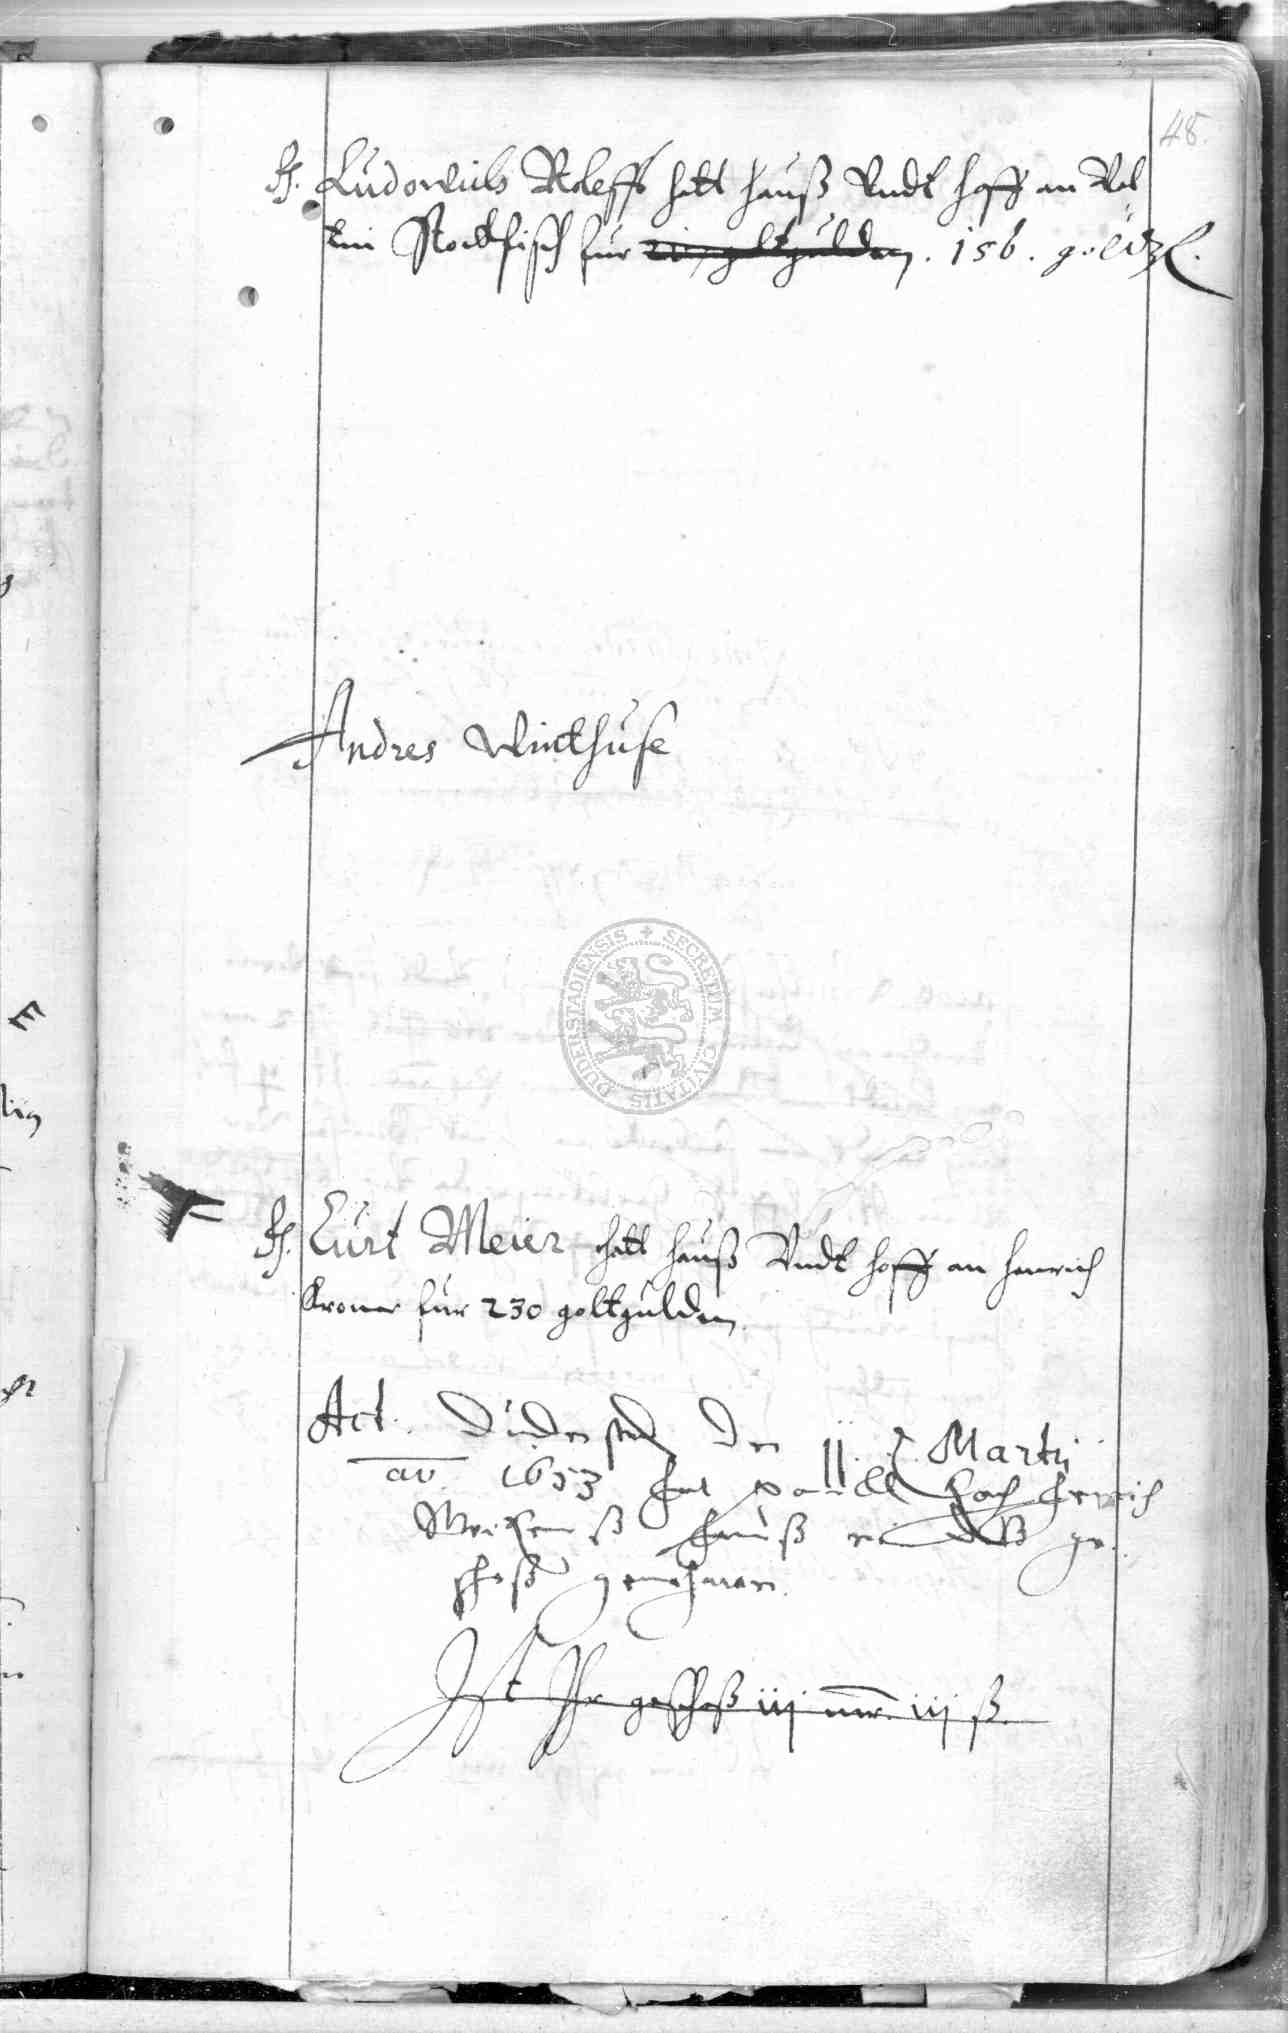 48.
Ludowich Roleffs hatt hauß Vndt hoff an Val
tin Stockfisch für goltgulden. 156. goldfl.
Andres Winthuse
SECRETUM CIVITATIS DUDERSTADIENSIS
Curt Meier hatt hauß Vndt hoff an henrich
Kroner für 230 goltgulden
Act. Duderstad den 11 Martij
ao 1653 hat henrich
hauß ge
schoß genohmen.
Ist Ihr geschoß iij mr. iij ß.